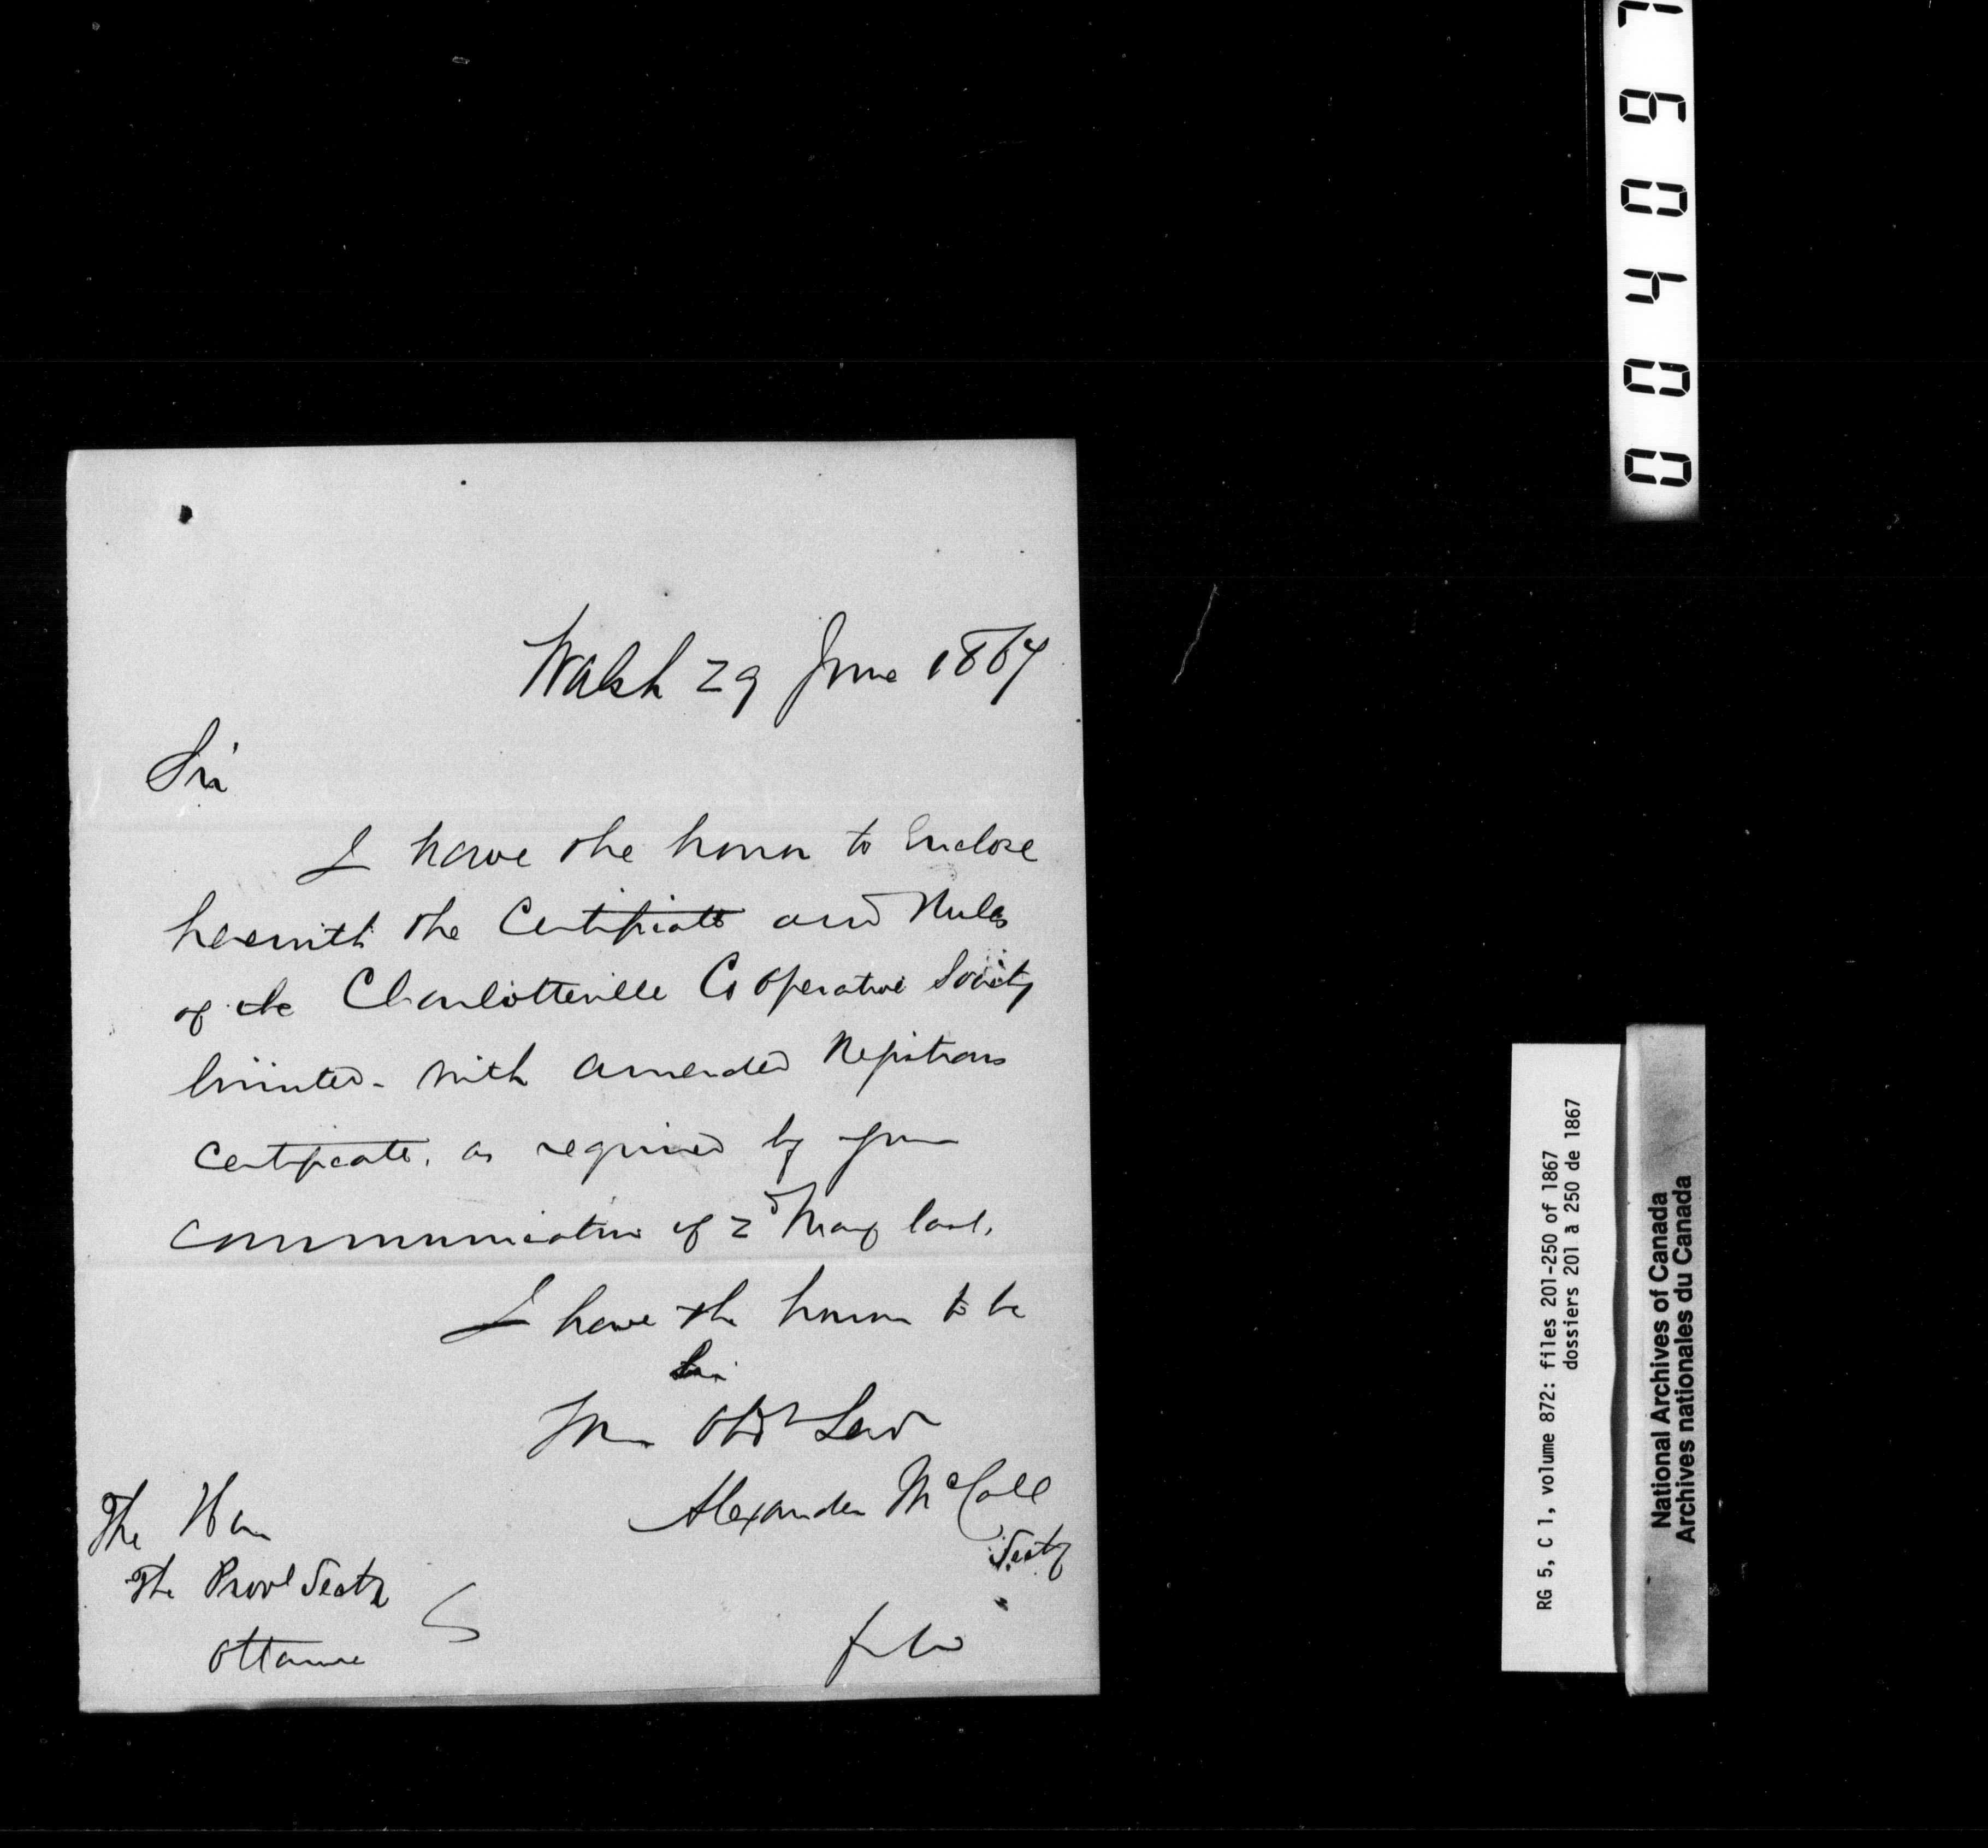 Walsh 29 June 1867
Sir
I have the honor to Enclose
herewith the Certificate and Rules
of the Charlotteville Co operative Society
limited - with amended Registrars
Certificate, as required by your
communication of 2d May last.
I have the honor to be
Sir
Your Obdt Serv
Alexander McCall
Secty
The Hon
The Provl Secty
Ottawa
004097
RG 5, C 1, volume 872: files 201-250 of 1867
dossiers 201 à 250 de 1867
National Archives of Canada
Archives nationales du Canada